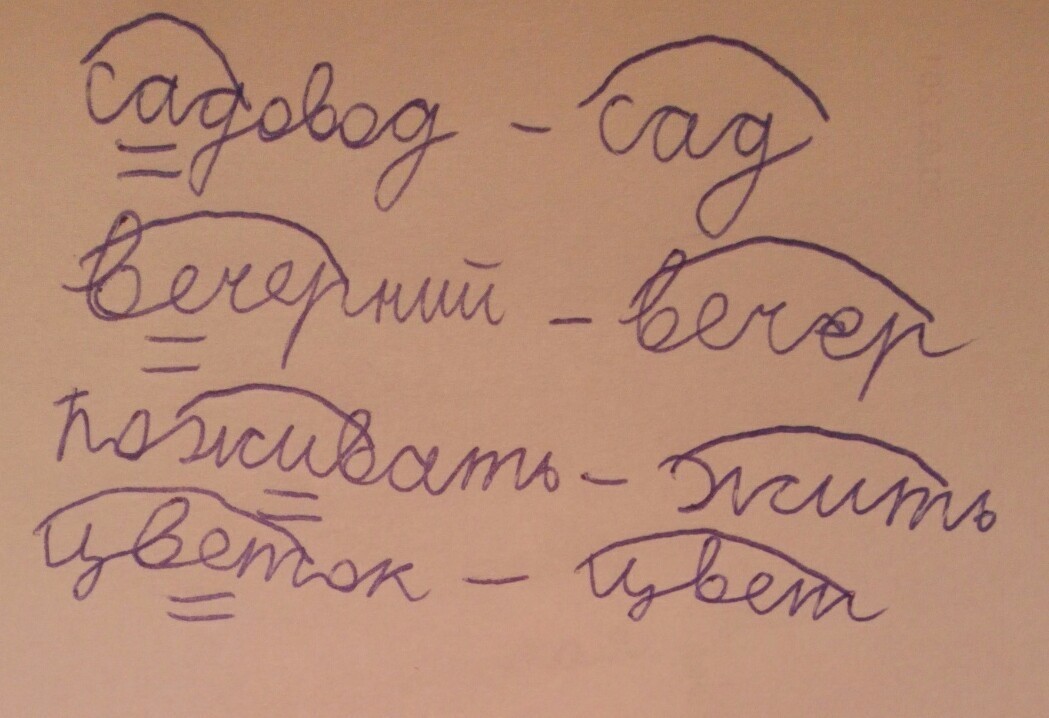 садовод - сад
вечерний - вечер
поживать - жить
цветок - цвет